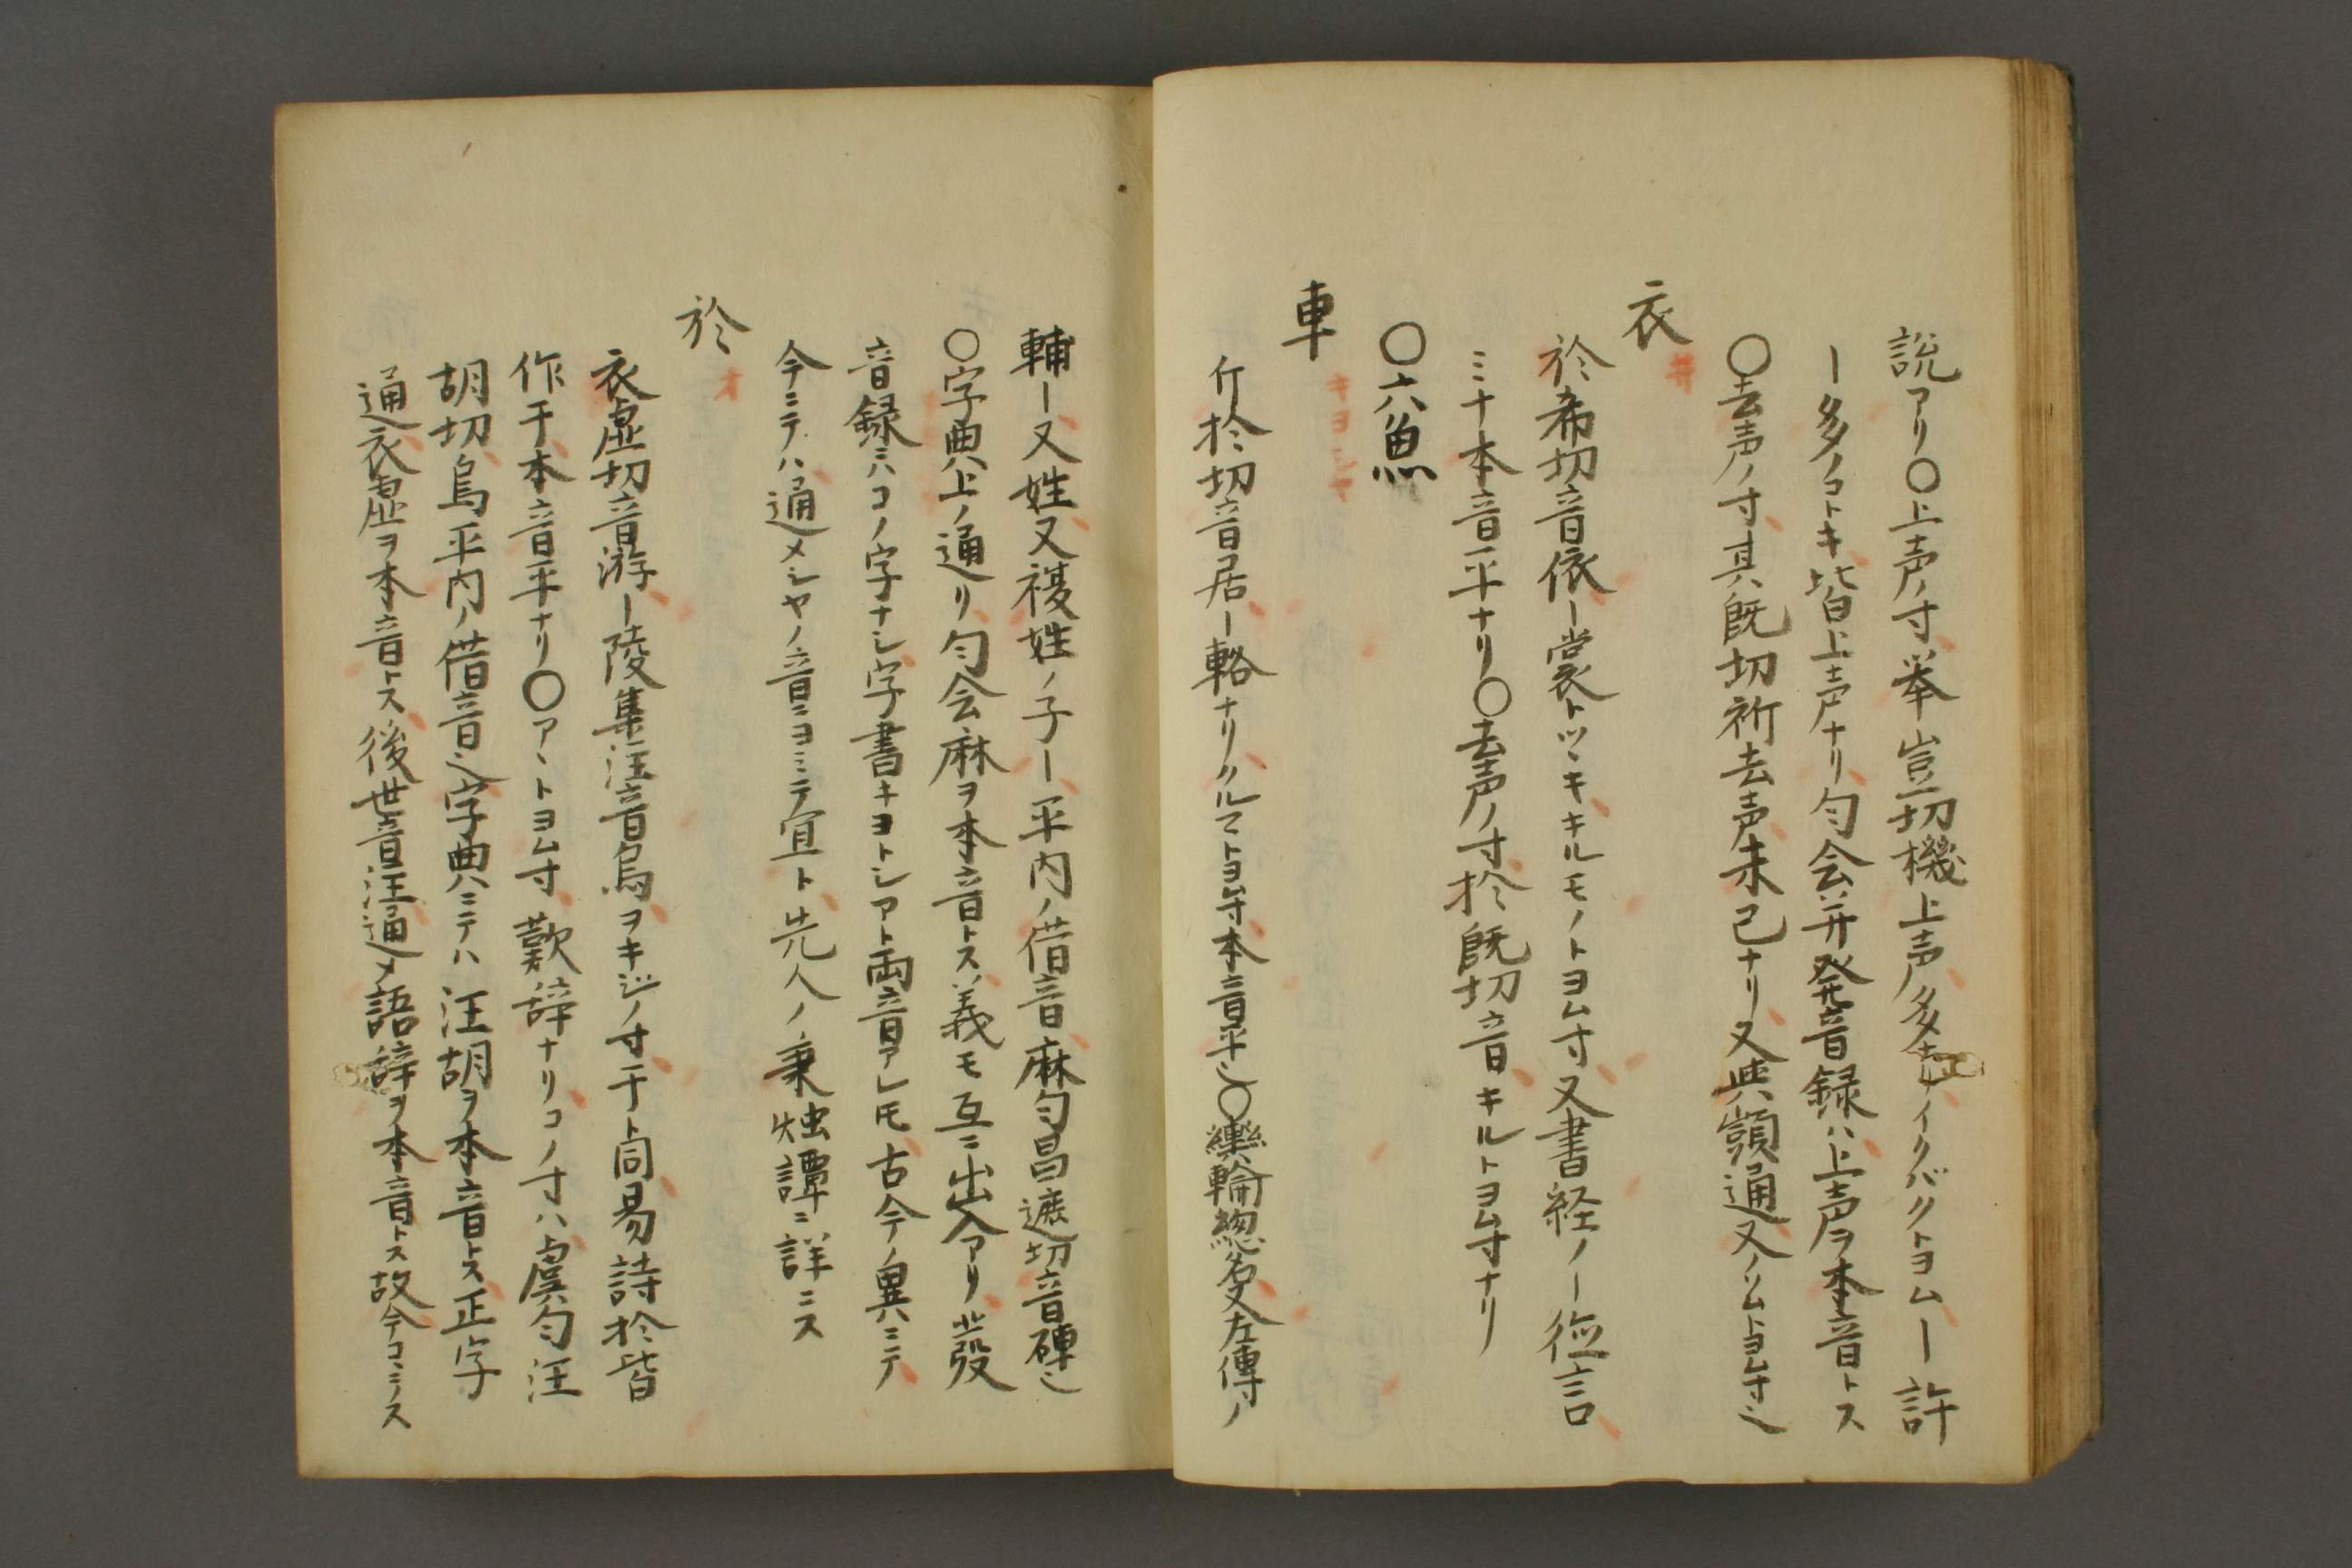 説アリ〇上声ノ寸挙豈切機上声多少ノイクバクトヨムー許
ー多ノコトキ皆上声ナリ匀会并発音録ハ上声ヲ本音トス
〇去声ノ寸其既切祈去声未已ナリ又與顗通又ノソムトヨム寸也
衣
井
於希切音依ー裳トツヽキキルモノトヨム寸又書経ノー徳言
ミナ本音平ナリ〇去声ノ寸於既切音キルトヨム寸ナリ
〇六魚
車
キヨ シヤ
斤於切音居ー輅ナリクルマトヨム寸本音平也〇輿輪総名又左傳ノ
輔ー又姓又複姓ノ子ー平内ノ借音麻匀昌遮切音硨也
〇字典上ノ通リ匀会麻ヲ本音トス義モ互ニ出入アリ発
音録ニハコノ字ナシ字書キヨトシアト両音アレ𪜈古今ノ異ニテ
今ニテハ通メシヤノ音ニヨミテ宜ト先人ノ秉燭譚ニ詳ニス
於
オ
衣虚切音淤ー陵集注音烏ヲキジノ寸于ト同易詩於皆
作于本音平ナリ〇アヽトヨム寸歎辞ナリコノ寸ハ虞匀汪
胡切烏平内ノ借音也字典ニテハ汪胡ヲ本音トス正字
通衣虚ヲ本音トス後世音汪通メ語辞ヲ本音トス故今コヽニノス